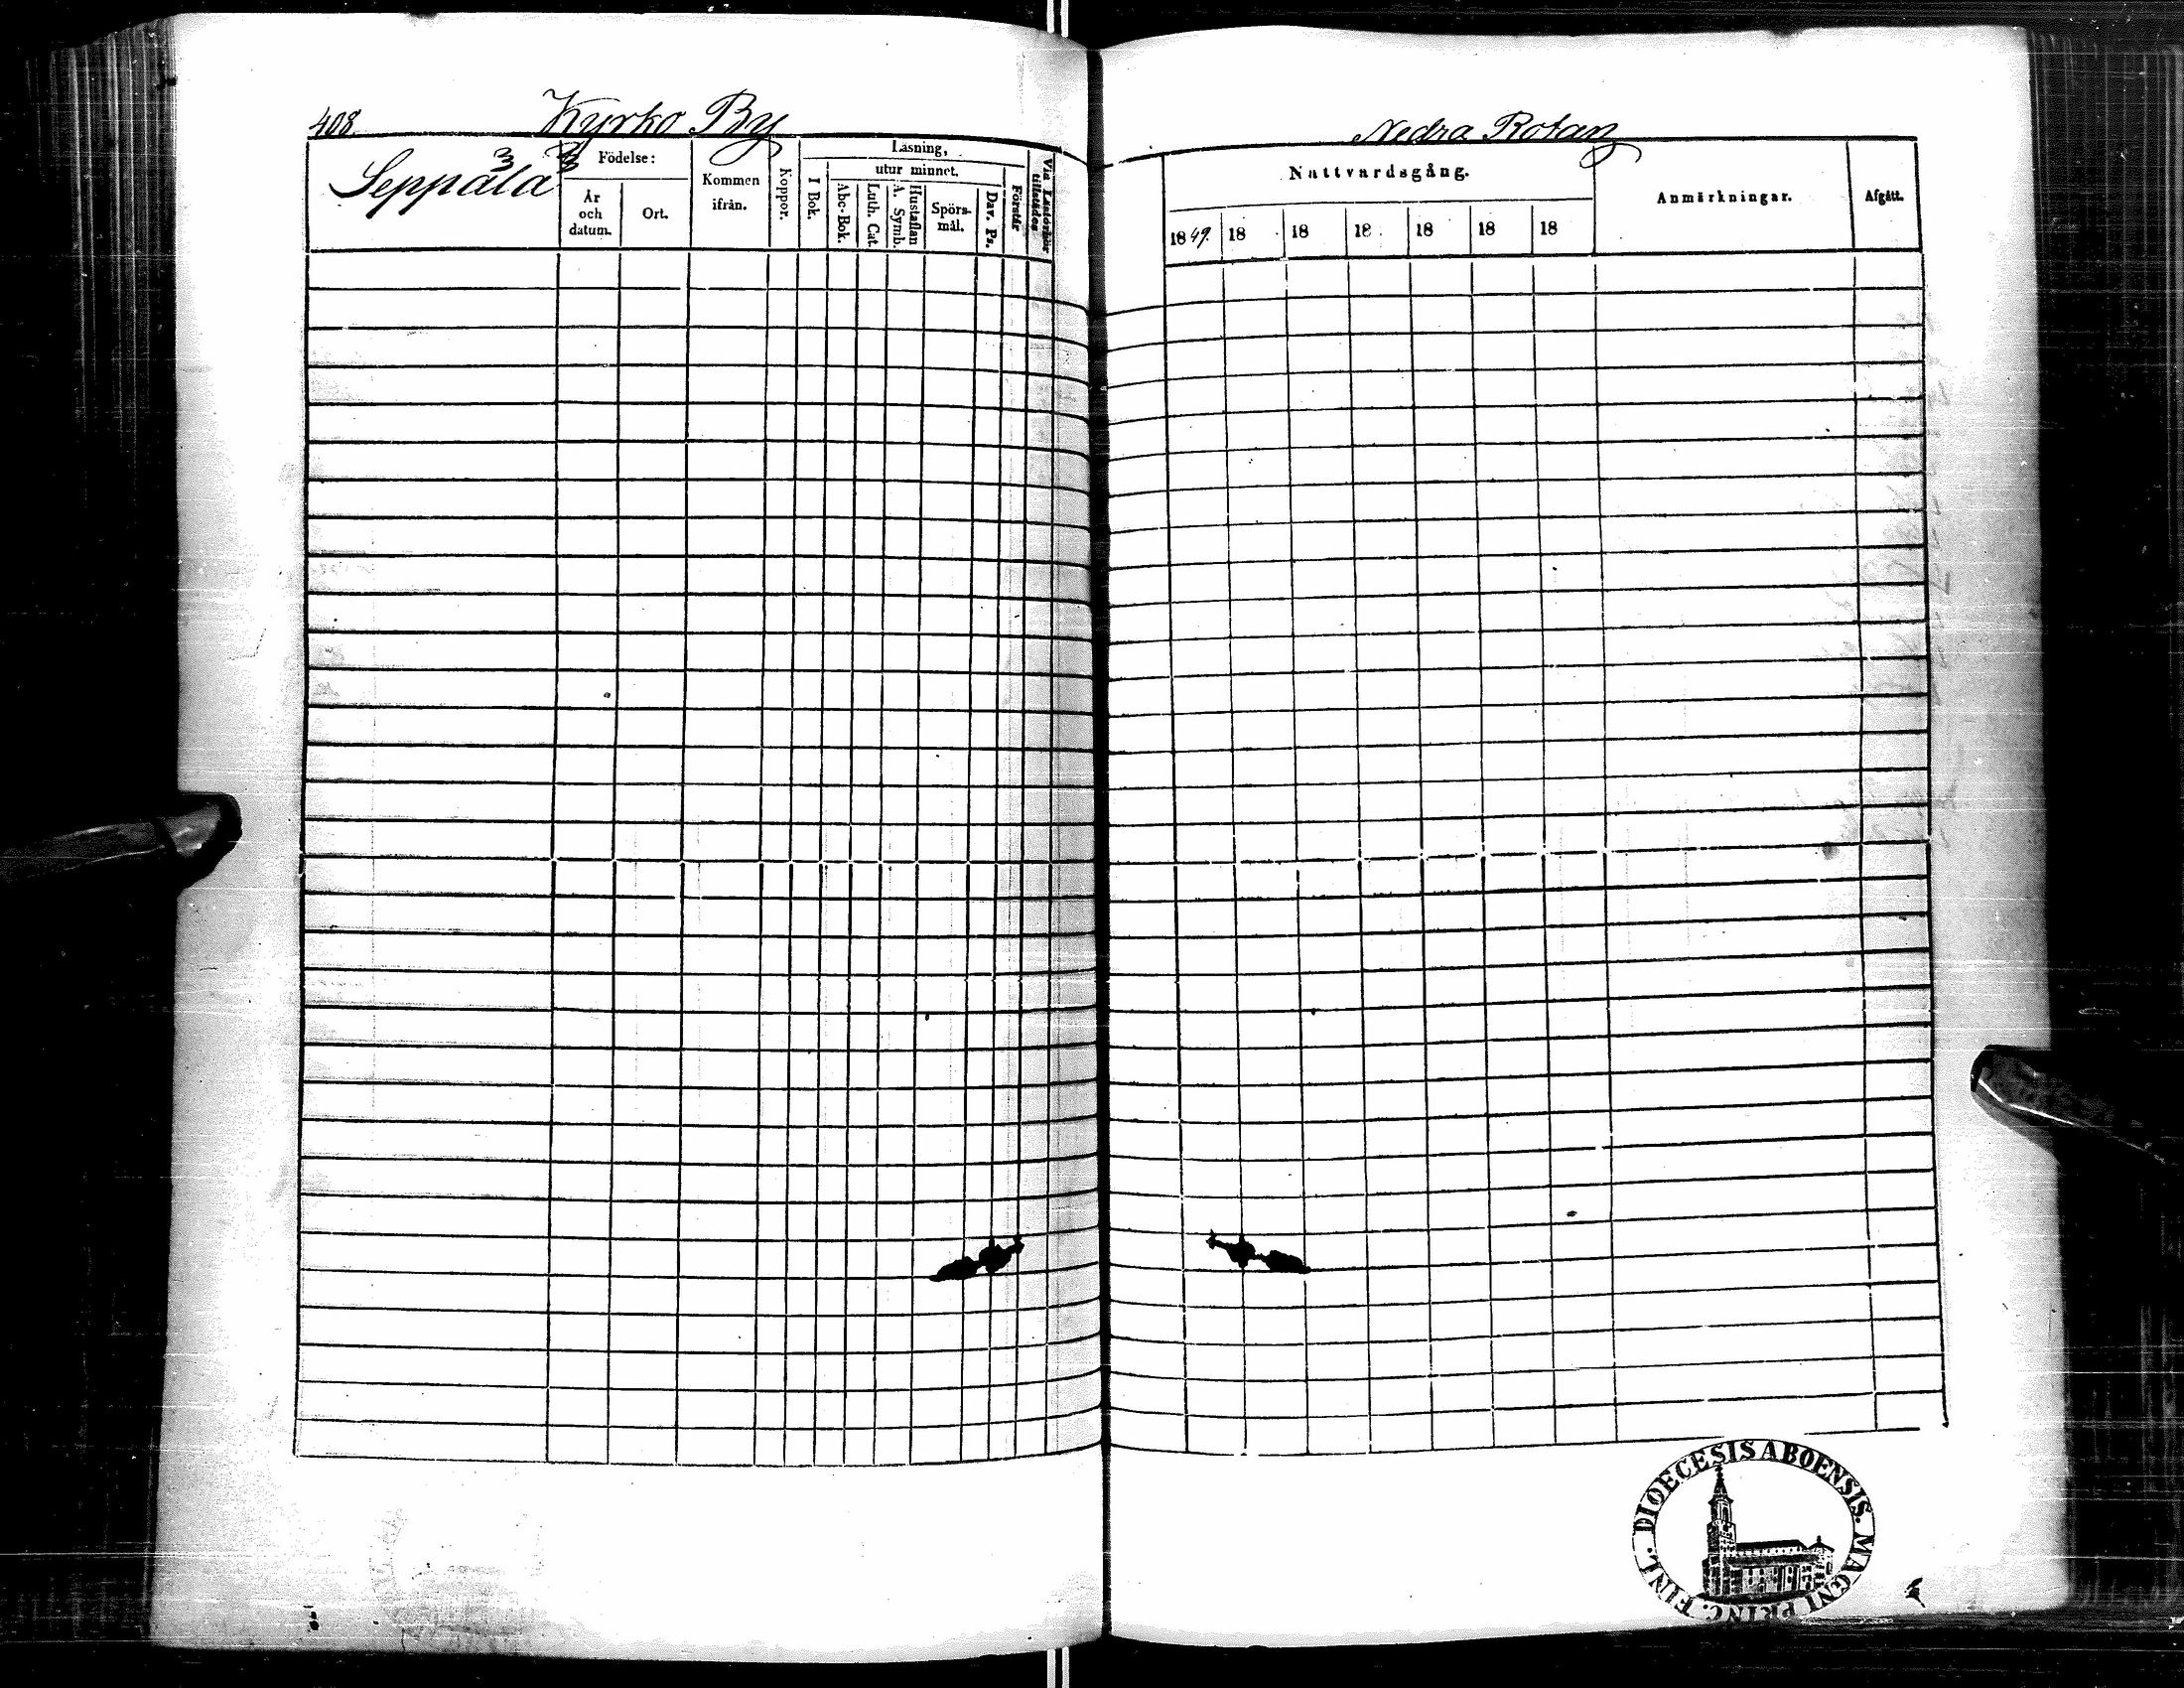 408.
Kyrko By
Nedra Rotan
Seppälä
Födelse:
År och datum.
Ort.
Kommen ifrån.
Koppor.
Läsning,
I Bok.
utur minnet.
Abc-Bok.
Luth. Cat.
A. Symb.
Hustaflan
Spörs-mål.
Dav. Ps.
Förstår
Vid Läsförhör tillstädes
Nattvardsgång.
1849. 18 18 18 18 18 18
Anmärkningar.
Afgått.
DIOECESIS ABOENSIS. MAGNI PRINC. FINL.